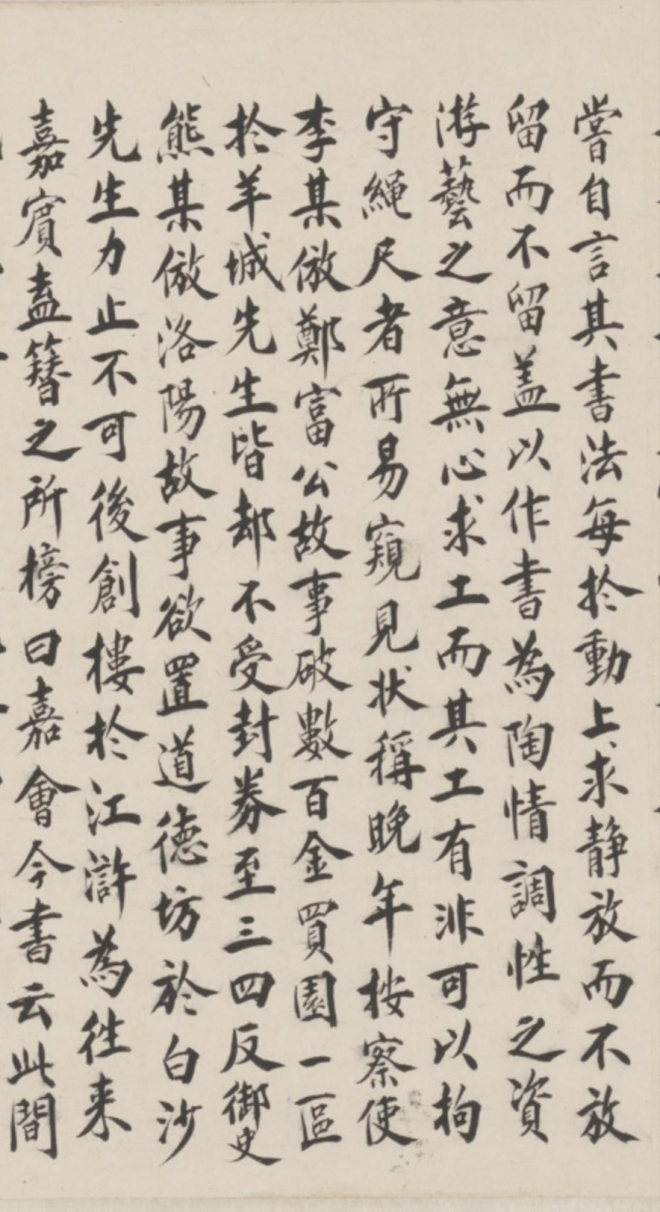 嘗自言其書法每於動上求静放而不放
留而不留盖以作書為陶情調性之資
游藝之意無心求工而其工有非可以拘
守繩尺者所易窺見状稱晚年按察使
李某倣鄭富公故事破數百金買園一區
於羊城先生皆却不受封券至三四反御史
熊某倣洛陽故事欲置道德坊於白沙
先生力止不可後創樓於江滸為往来
嘉賓盍簪之所榜曰嘉會今書云此間